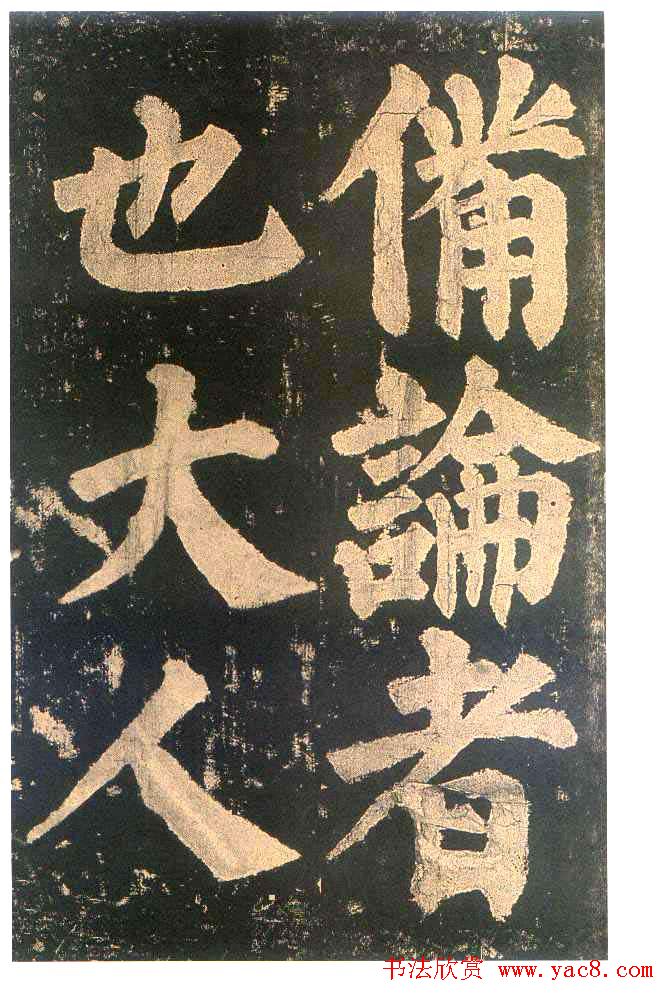 備論者
也大人
书法欣赏 www.yac8.com